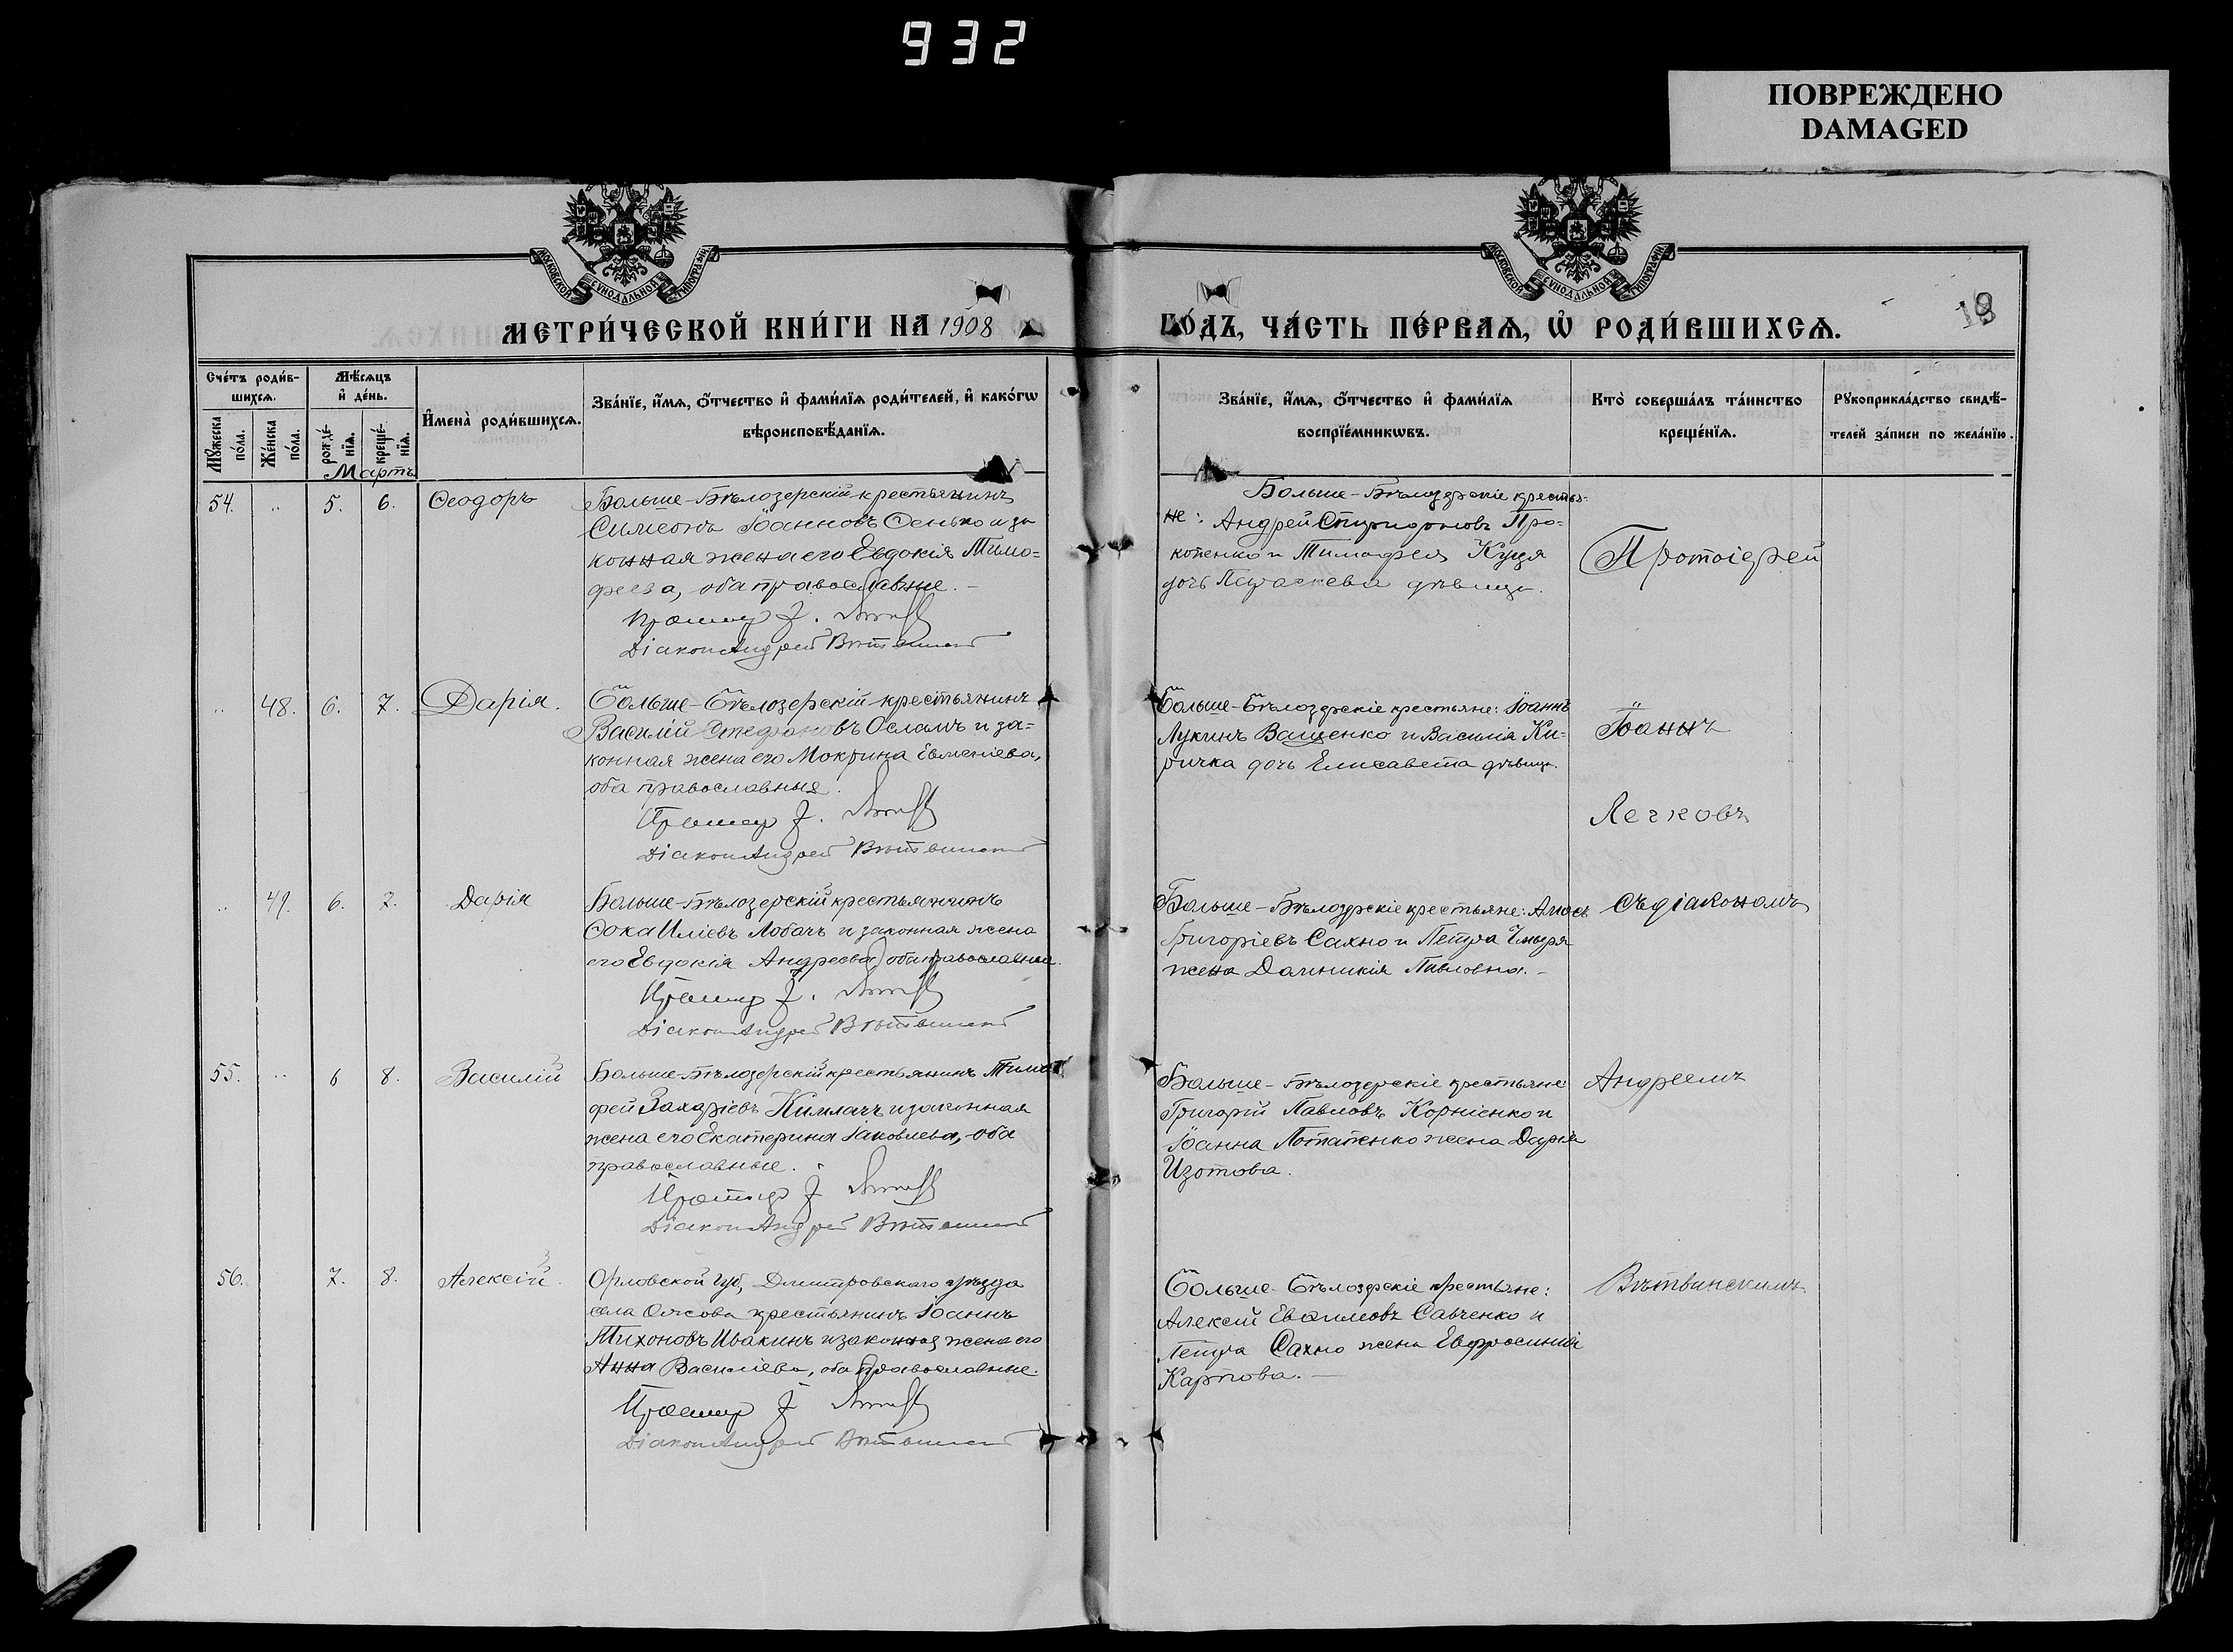 932
ПОВРЕЖДЕНО
DAMAGED
МОСКОВСКОЙ СѴНОДАЛЬНОЙ ТИПОГРАФІИ
МОСКОВСКОЙ СѴНОДАЛЬНОЙ ТИПОГРАФІИ
МЕТРИ́ЧЕСКОЙ КНИ́ГИ НА 1908
ГО́ДЪ, ЧА́СТЬ ПЕ́РВАѦ, Ѡ҆ РОДИ́ВШИХСѦ.
Сче́тъ роди́в-
шихсѧ.
Мꙋ́жеска по́ла.
Же́нска по́ла.
Мѣ́сѧцъ
и҆ де́нь.
рожде́-
нїѧ.
креще́-
нїѧ.
И҆мена̀ роди́вшихсѧ.
Зва́нїе, и҆́мѧ, ѻ҆́тчество и҆ фами́лїѧ роди́телей, и҆ како́гѡ
вѣроисповѣ́данїѧ.
Зва́нїе, и҆́мѧ, ѻ҆́тчество и҆ фами́лїѧ
воспрїе́мникѡвъ.
Кто̀ соверша́лъ та́инство
креще́нїѧ.
Рꙋкоприкла́дство свидѣ́-
телей за́писи по жела́нїю.
Мартъ
54. .. 5. 6. Ѳеодоръ
Больше-Бѣлозерскій крестьянинъ
Симеонъ Іоанновъ Сенько и за
конная жена его Евдокія Тимо=
феева, оба православные.-
Діаконъ Андрей Вѣтвинскій
Больше-Бѣлозерскіе крестья=
не: Андрей Спиридоновъ Про=
копенко и Тимофея Куця
дочь Параскева дѣвица.
Протоіерей
.. 48. 6. 7. Дарія.
Больше-Бѣлозерскій крестьянинъ
Василій Стефановъ Осламъ и за=
конная жена его Мокрина Евменіева,
оба православные.
Діаконъ Андрей Вѣтвинскій
Больше-Бѣлозерскіе крестьяне: Іоаннъ
Лукинъ Ващенко и Василія Ки=
ричка дочь Елисавета дѣвица.
Іоаннъ
Легковъ
.. 49. 6. 7. Дарія
Больше-Бѣлозерскій крестьянинъ
Фока Иліевъ Лобачъ и законная жена
его Евдокія Андреева, оба православные.
Діаконъ Андрей Вѣтвинскій
Больше-Бѣлозерскіе крестьяне: Амосъ
Григоріевъ Сахно и Петра
жена Домникія Павловна.-
съ діакономъ
55. .. 6 8. Василій
Больше-Бѣлозерскій крестьянинъ Тимо
фей Захаріевъ Кимлачъ и законная
жена его Екатерина Іаковлева, оба
православные.
Діаконъ Андрей Вѣтвинскій
Больше-Бѣлозерскіе крестьяне
Григорій Павловъ Корніенко и
Іоанна Потапенко жена Дарія
Изотова.
Андреемъ
56. 7. 8. Алексій.
Орловской губ, Дмитровскаго уѣзда
села крестьянинъ Іоаннъ
Тихоновъ Ивакинъ и законная жена его
Анна Василіева, оба православные.
Діаконъ Андрей Вѣтвинскій
Больше-Бѣлозерскіе крестьяне:
Алексій Евѳиміовъ Савченко и
Петра Сахно жена Евфросинія
Карпова.-
Вѣтвинскимъ